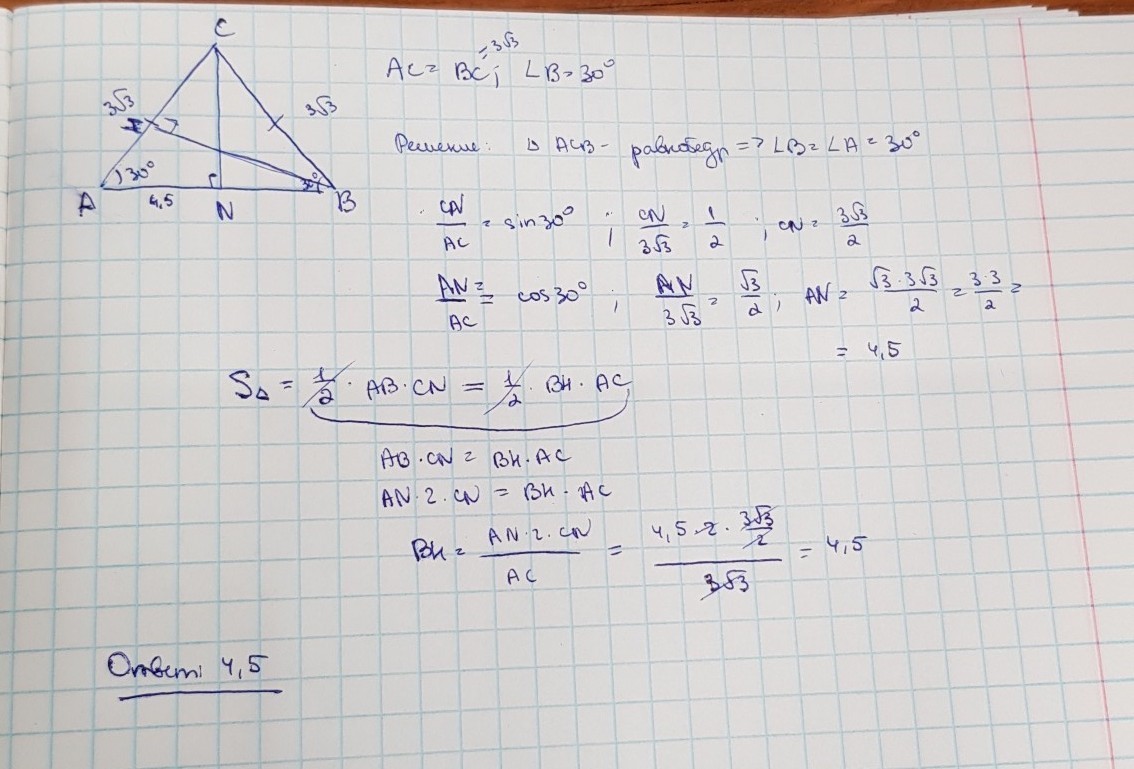 C
AC = BC = 3√3; ∠B = 30°
3√3 3√3
Решение: Δ ACB - равнобедр => ∠B = ∠A = 30°
30° 30°
A 4,5 N B
CN/AC = sin30° ; CN/3√3 = 1/2 ; CN = 3√3/2
AN/AC = cos30° ; AN/3√3 = √3/2 ; AN = √3·3√3/2 = 3·3/2 =
= 4,5
S△ = 1/2 · AB · CN = 1/2 · BH · AC
AB · CN = BH · AC
AN · 2 · CN = BH · AC
BH = AN·2·CN/AC = 4,5·2·3√3/2/3√3 = 4,5
Ответ: 4,5